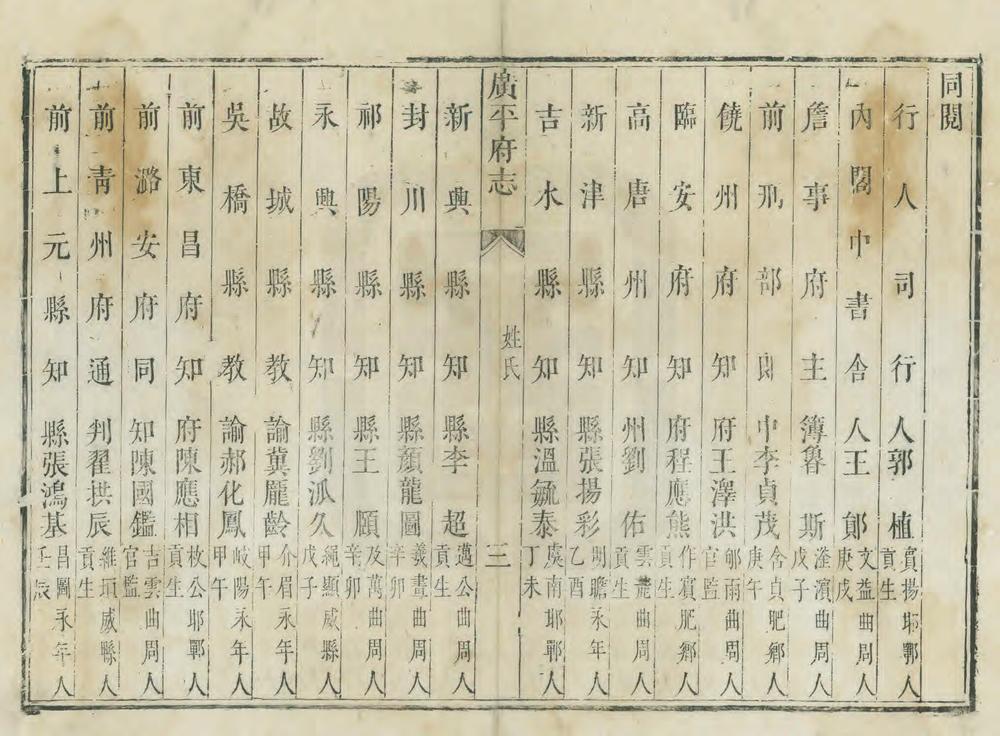 同閱
行人司行人郭植賓揚貢生邯鄲人
內閣中書舍人王䣊文益庚戌曲周人
詹事府主簿魯斯滏濱戊子曲周人
前刑部郎中李貞茂含貞庚午肥鄉人
饒州府知府王澤洪郇雨官監曲周人
臨安府知府程應熊作賓貢生肥鄉人
高唐州知州劉佑雲麓貢生曲周人
新津縣知縣張揚彩明瞻乙酉永年人
吉水縣知縣溫毓泰虞南丁未邯鄲人
廣平府志 姓氏 三
新興縣知縣李超邁公貢生曲周人
封川縣知縣顏龍圖羲畫辛卯曲周人
祁陽縣知縣王願及萬辛卯曲周人
永興縣知縣劉泒久繩顯戊子威縣人
故城縣教諭冀龐齡介眉甲午永年人
吳橋縣教諭郝化鳳岐陽甲午永年人
前東昌府知府陳應相枚公貢生邯鄲人
前潞安府同知陳國鑑吉雲官監曲周人
前靑州府通判翟拱辰維垣貢生威縣人
前上元縣知縣張鴻基昌圖壬辰永年人